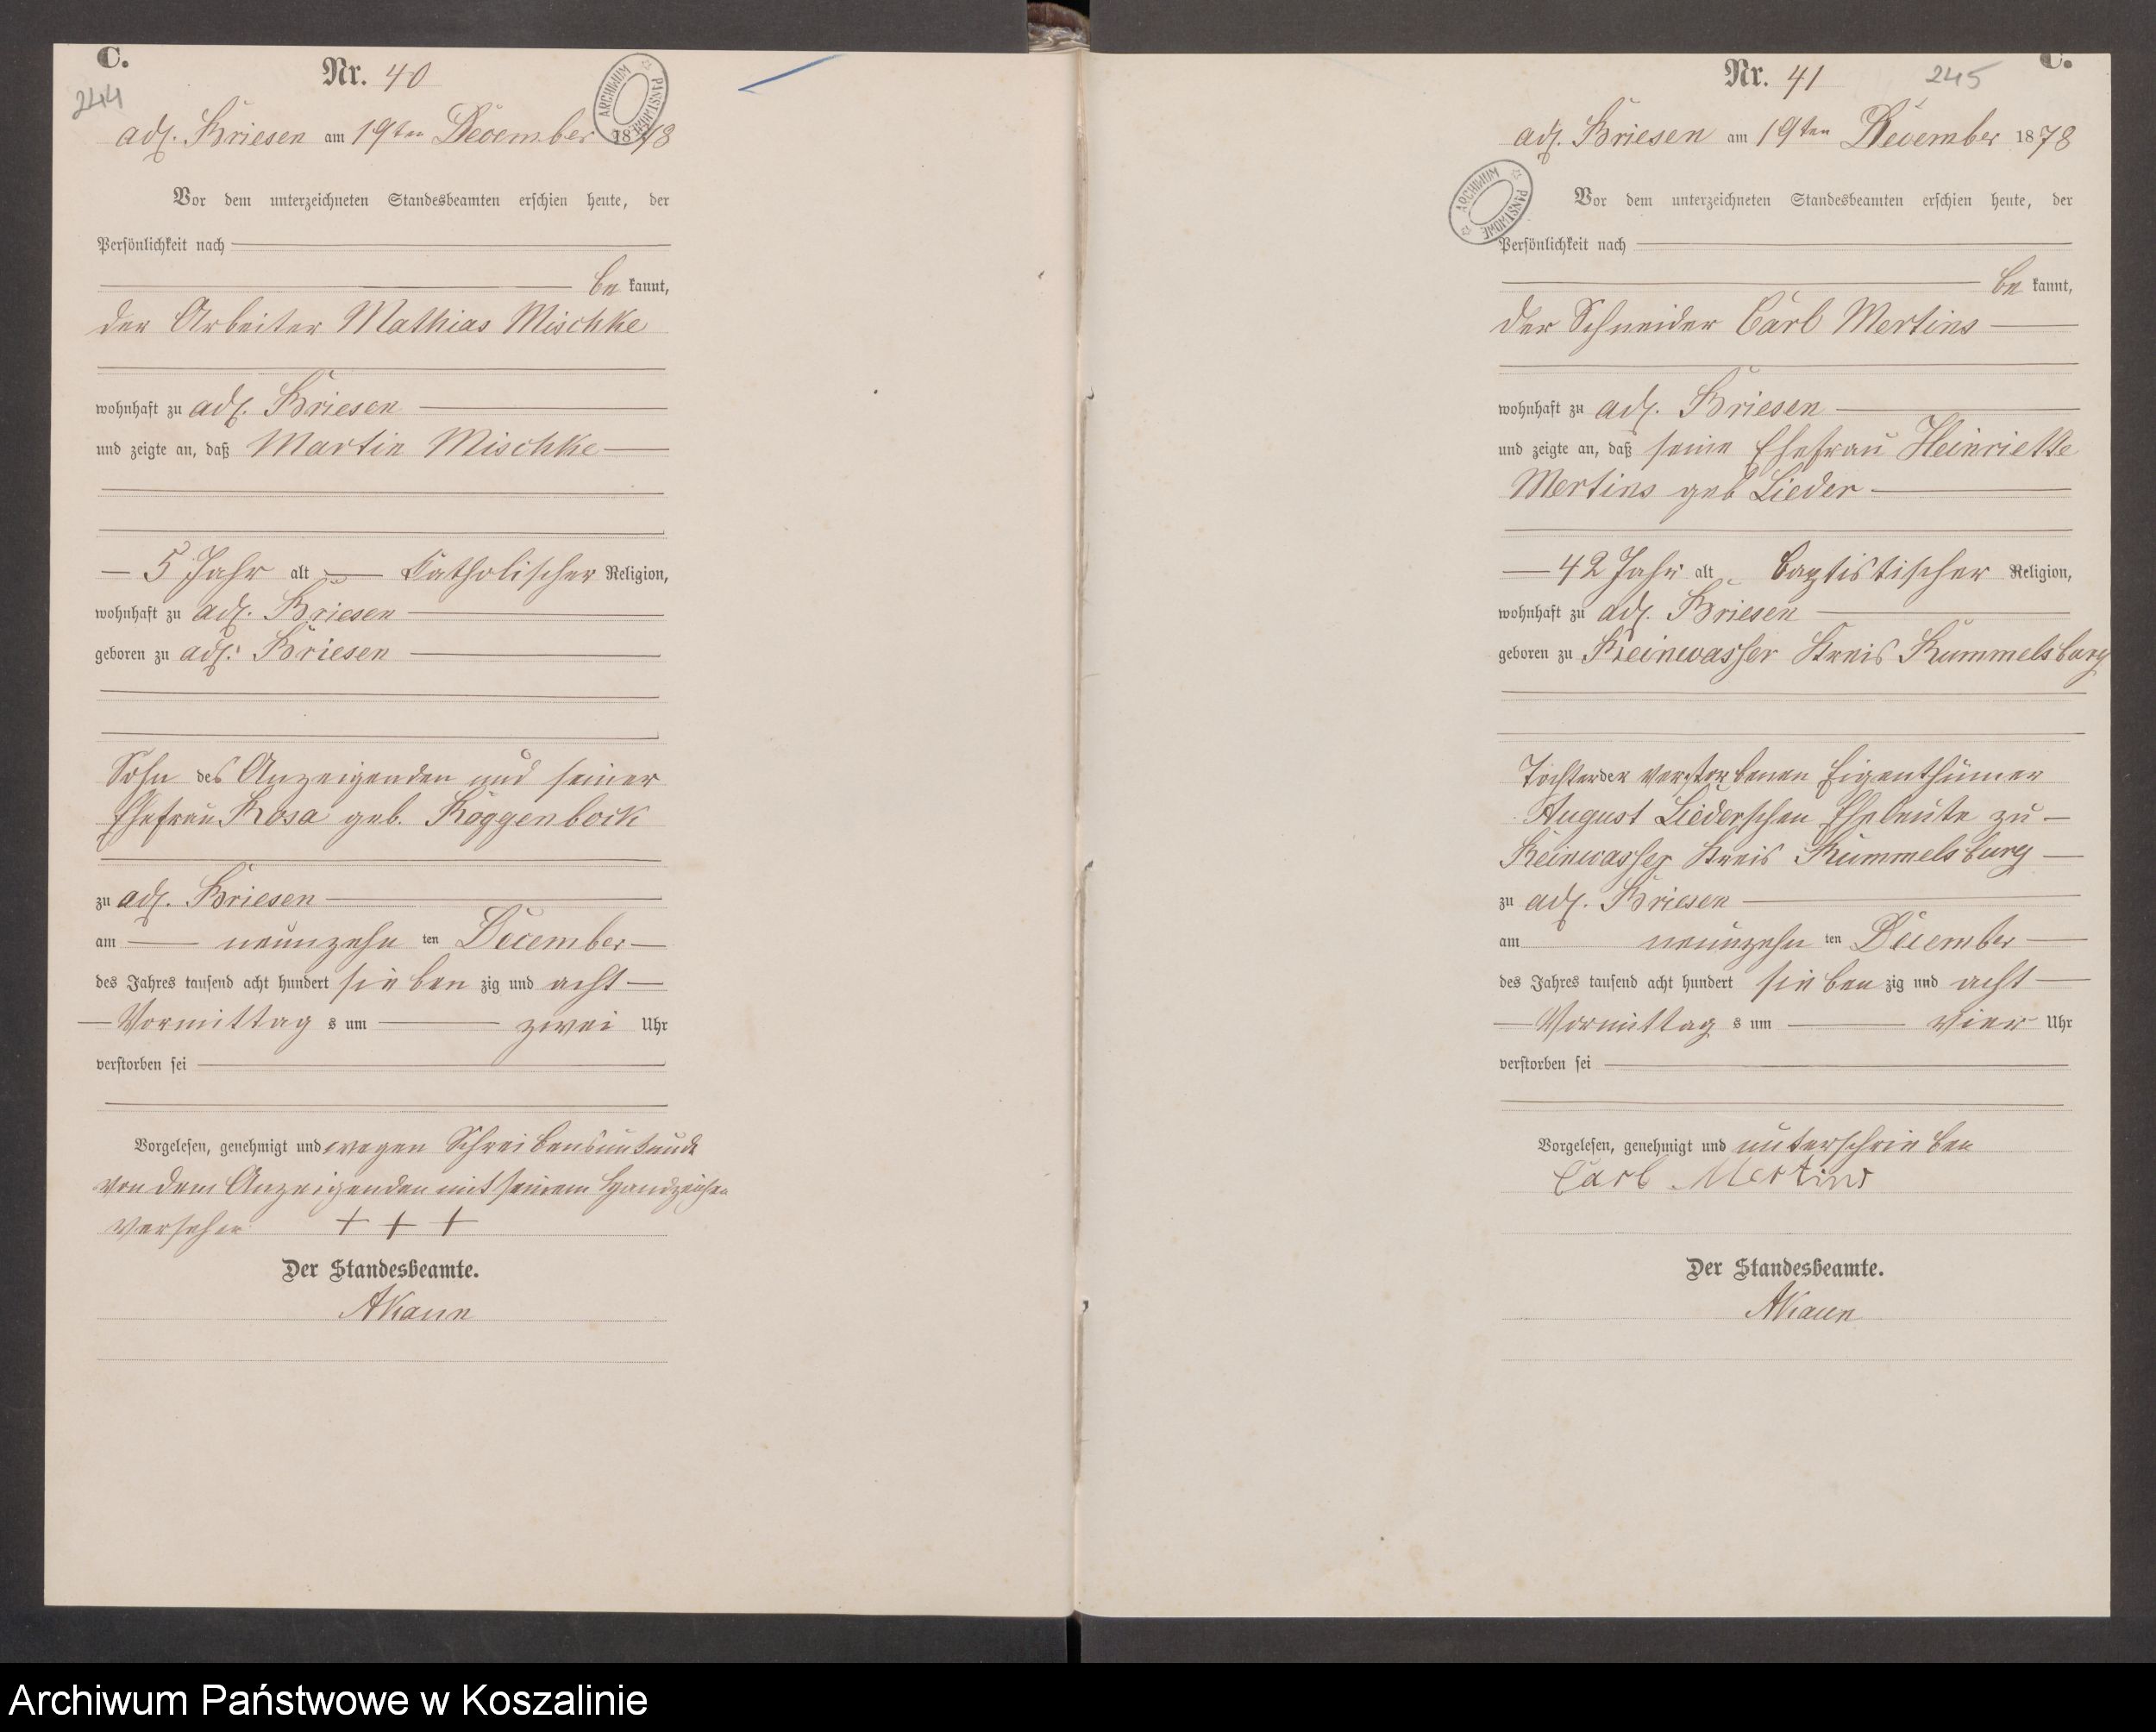 C.
Nr. 40
244
ARCHIWUM PAŃSTWOWE
adl. Briesen am 19ten December 1878
Vor dem unterzeichneten Standesbeamten erschien heute, der
Persönlichkeit nach
be kannt,
der Arbeiter Mathias Mischke
wohnhaft zu adl. Briesen
und zeigte an, daß Martin Mischke
5 Jahr alt Katholischer Religion,
wohnhaft zu adl. Briesen
geboren zu adl. Briesen
Sohn des Anzeigenden und seiner
Ehefrau Rosa geb. Roggenbock
zu adl. Briesen
am neunzehn ten December
des Jahres tausend acht hundert sieben zig und acht
Vormittag s um zwei Uhr
verstorben sei
Vorgelesen, genehmigt und wegen Schreibensunkunde
von dem Anzeigenden mit seinem Handzeichen
versehen + + +
Der Standesbeamte.
AKaun
C.
Nr. 41
245
ARCHIWUM PAŃSTWOWE
adl. Briesen am 19ten December 1878
Vor dem unterzeichneten Standesbeamten erschien heute, der
Persönlichkeit nach
be kannt,
der Schneider Carl Mertins
wohnhaft zu adl. Briesen
und zeigte an, daß seine Ehefrau Heinriette
Mertins geb Lieder
42 Jahr alt baptistischer Religion,
wohnhaft zu adl. Briesen
geboren zu Reinwasser Kreis Rummelsburg
Tochter der verstorbenen Eigenthümer
August Liederschen Eheleute zu
Reinwasser Kreis Rummelsburg
zu adl. Briesen
am neunzehn ten December
des Jahres tausend acht hundert sieben zig und acht
Vormittag s um vier Uhr
verstorben sei
Vorgelesen, genehmigt und unterschrieben
Carl Mertins
Der Standesbeamte.
AKaun
Archiwum Państwowe w Koszalinie